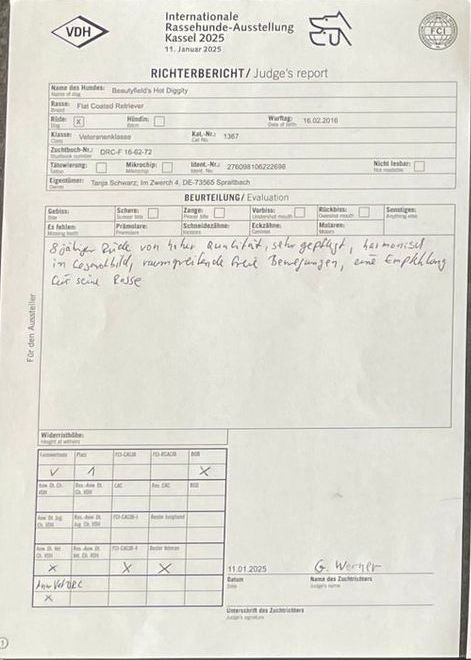 VDH
Internationale
Rassehunde-Ausstellung
Kassel 2025
11. Januar 2025
FCI
RICHTERBERICHT/ Judge's report
Name des Hundes: Beautyfield's Hot Diggity
Name of dog
Rasse: Flat Coated Retriever
Breed
Rüde: X Hündin: Wurftag: 16.02.2016
Dog Bitch Date of birth
Klasse: Veteranenklasse Kat.-Nr.: 1367
Class Cat.No.
Zuchtbuch-Nr.: DRC-F 16-62-72
Studbook number
Tätowierung: Mikrochip: Ident.-Nr.: 276098106222698 Nicht lesbar:
Tattoo Microchip Ident. No. Not readable
Eigentümer: Tanja Schwarz; Im Zwerch 4, DE-73565 Spraitbach
Owner
BEURTEILUNG/ Evaluation
Gebiss: Schere: Zange: Vorbiss: Rückbiss: Sonstiges:
Bite Scissor bite Pincer bite Undershot mouth Overshot mouth Anything else
Es fehlen: Prämolare: Schneidezähne: Eckzähne: Molaren:
Missing teeth Premolars Incisors Canines Molars
8 jähriger Rüde von hoher Qualität, sehr gepflegt, harmonisch
in Gesamtbild, raumgreifende freie Bewegungen, eine Empfehlung
für seine Rasse
Für den Aussteller
Widerristhöhe:
Height at withers
Formwertnote Platz FCI-CACIB FCI-RCACIB BOB
V 1 X
Anw. Dt. Ch. VDH Res.-Anw. Dt. Ch. VDH CAC Res. CAC BOS
Anw. Dt. Jug. Ch. VDH Res.-Anw. Dt. Jug. Ch. VDH FCI-CACIB-J Bester Junghund
Anw. Dt. Vet. Ch. VDH Res.-Anw. Dt. Vet. Ch. VDH FCI-CACIB-V Bester Veteran
X X X
Anw Vet DRC
X
11.01.2025 G. Werner
Datum Name des Zuchtrichters
Date Judge's name
Unterschrift des Zuchtrichters
Judge's signature
1